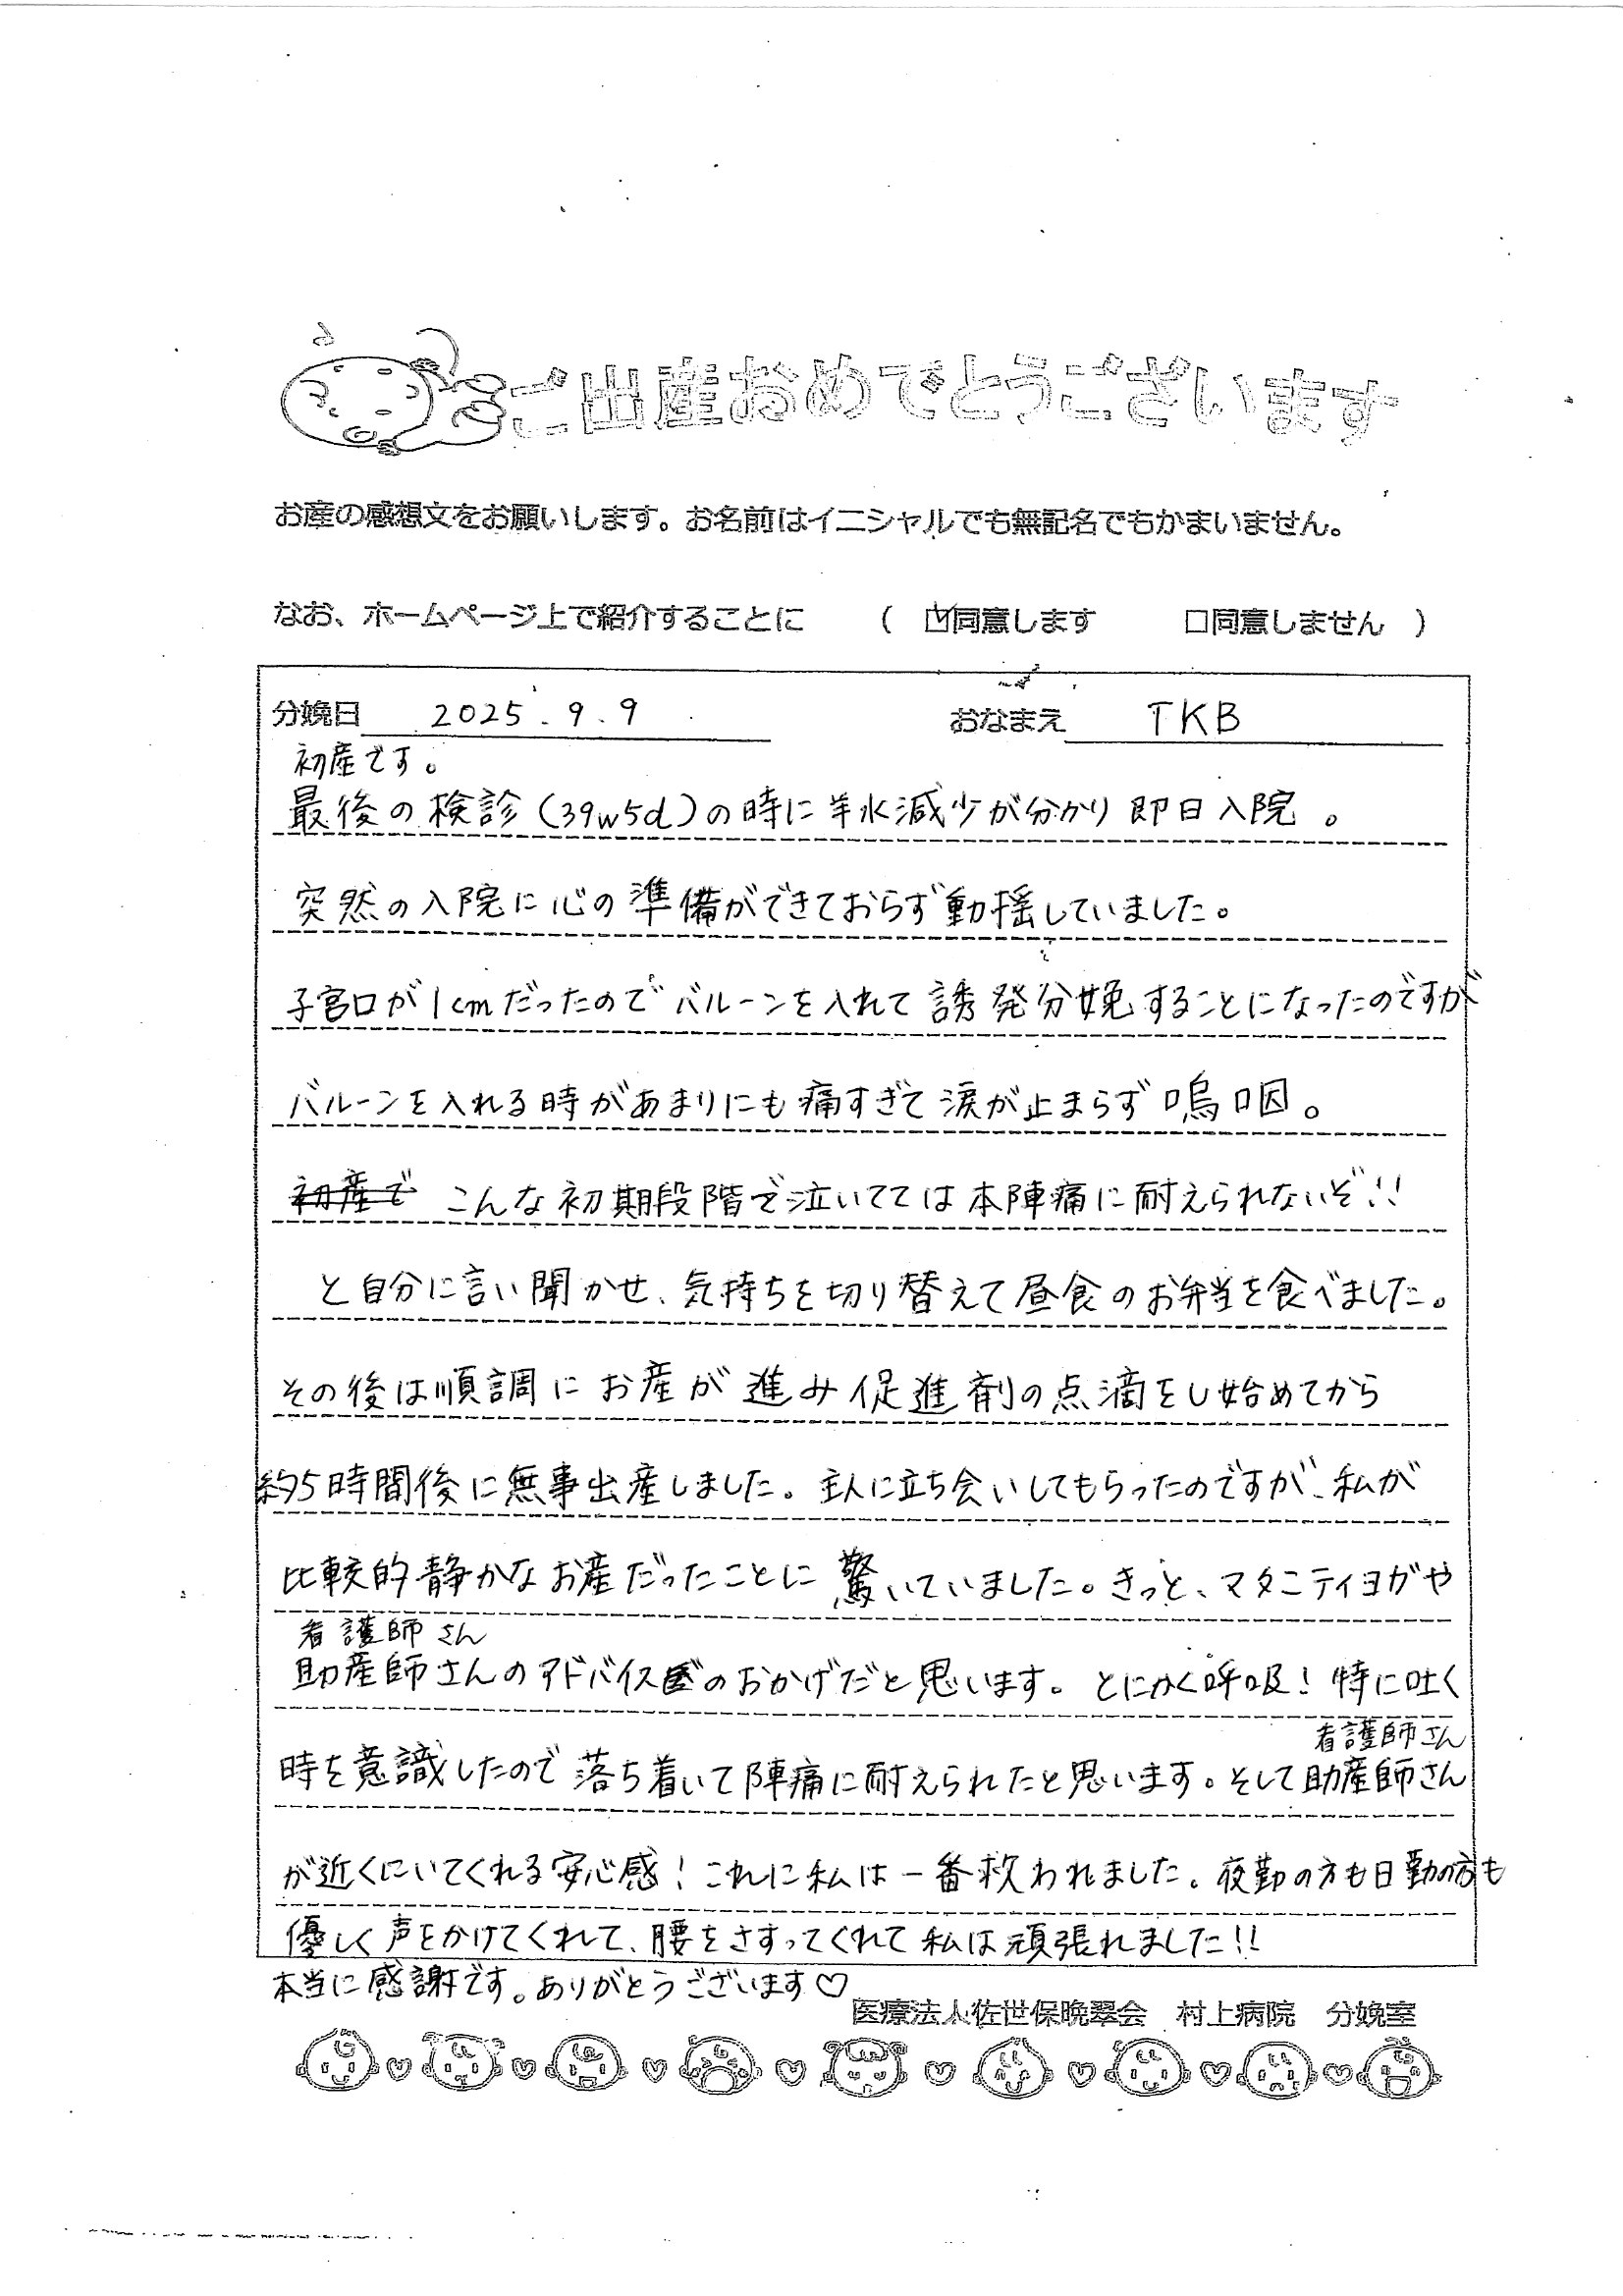 ご出産おめでとうございます
お産の感想文をお願いします。お名前はイニシャルでも無記名でもかまいません。
なお、ホームページ上で紹介することに ( ☑同意します □同意しません )
分娩日 2025.9.9 おなまえ TKB
初産です。
最後の検診(39w5d)の時に羊水減少が分かり即日入院。
突然の入院に心の準備ができておらず動揺していました。
子宮口が1cmだったのでバルーンを入れて誘発分娩することになったのですが
バルーンを入れる時があまりにも痛すぎて涙が止まらず嗚咽。
初産で こんな初期段階で泣いてては本陣痛に耐えられないぞ!!
と自分に言い聞かせ、気持ちを切り替えて昼食のお弁当を食べました。
その後は順調にお産が進み促進剤の点滴をし始めてから
約5時間後に無事出産しました。主人に立ち会いしてもらったのですが、私が
比較的静かなお産だったことに驚いていました。きっと、マタニティヨガや
看護師さん
助産師さんのアドバイスのおかげだと思います。とにかく呼吸!特に吐く
看護師さん
時を意識したので落ち着いて陣痛に耐えられたと思います。そして助産師さん
が近くにいてくれる安心感!これに私は一番救われました。夜勤の方も日勤の方も
優しく声をかけてくれて、腰をさすってくれて私は頑張れました!!
本当に感謝です。ありがとうございます♡
医療法人佐世保晩翠会 村上病院 分娩室